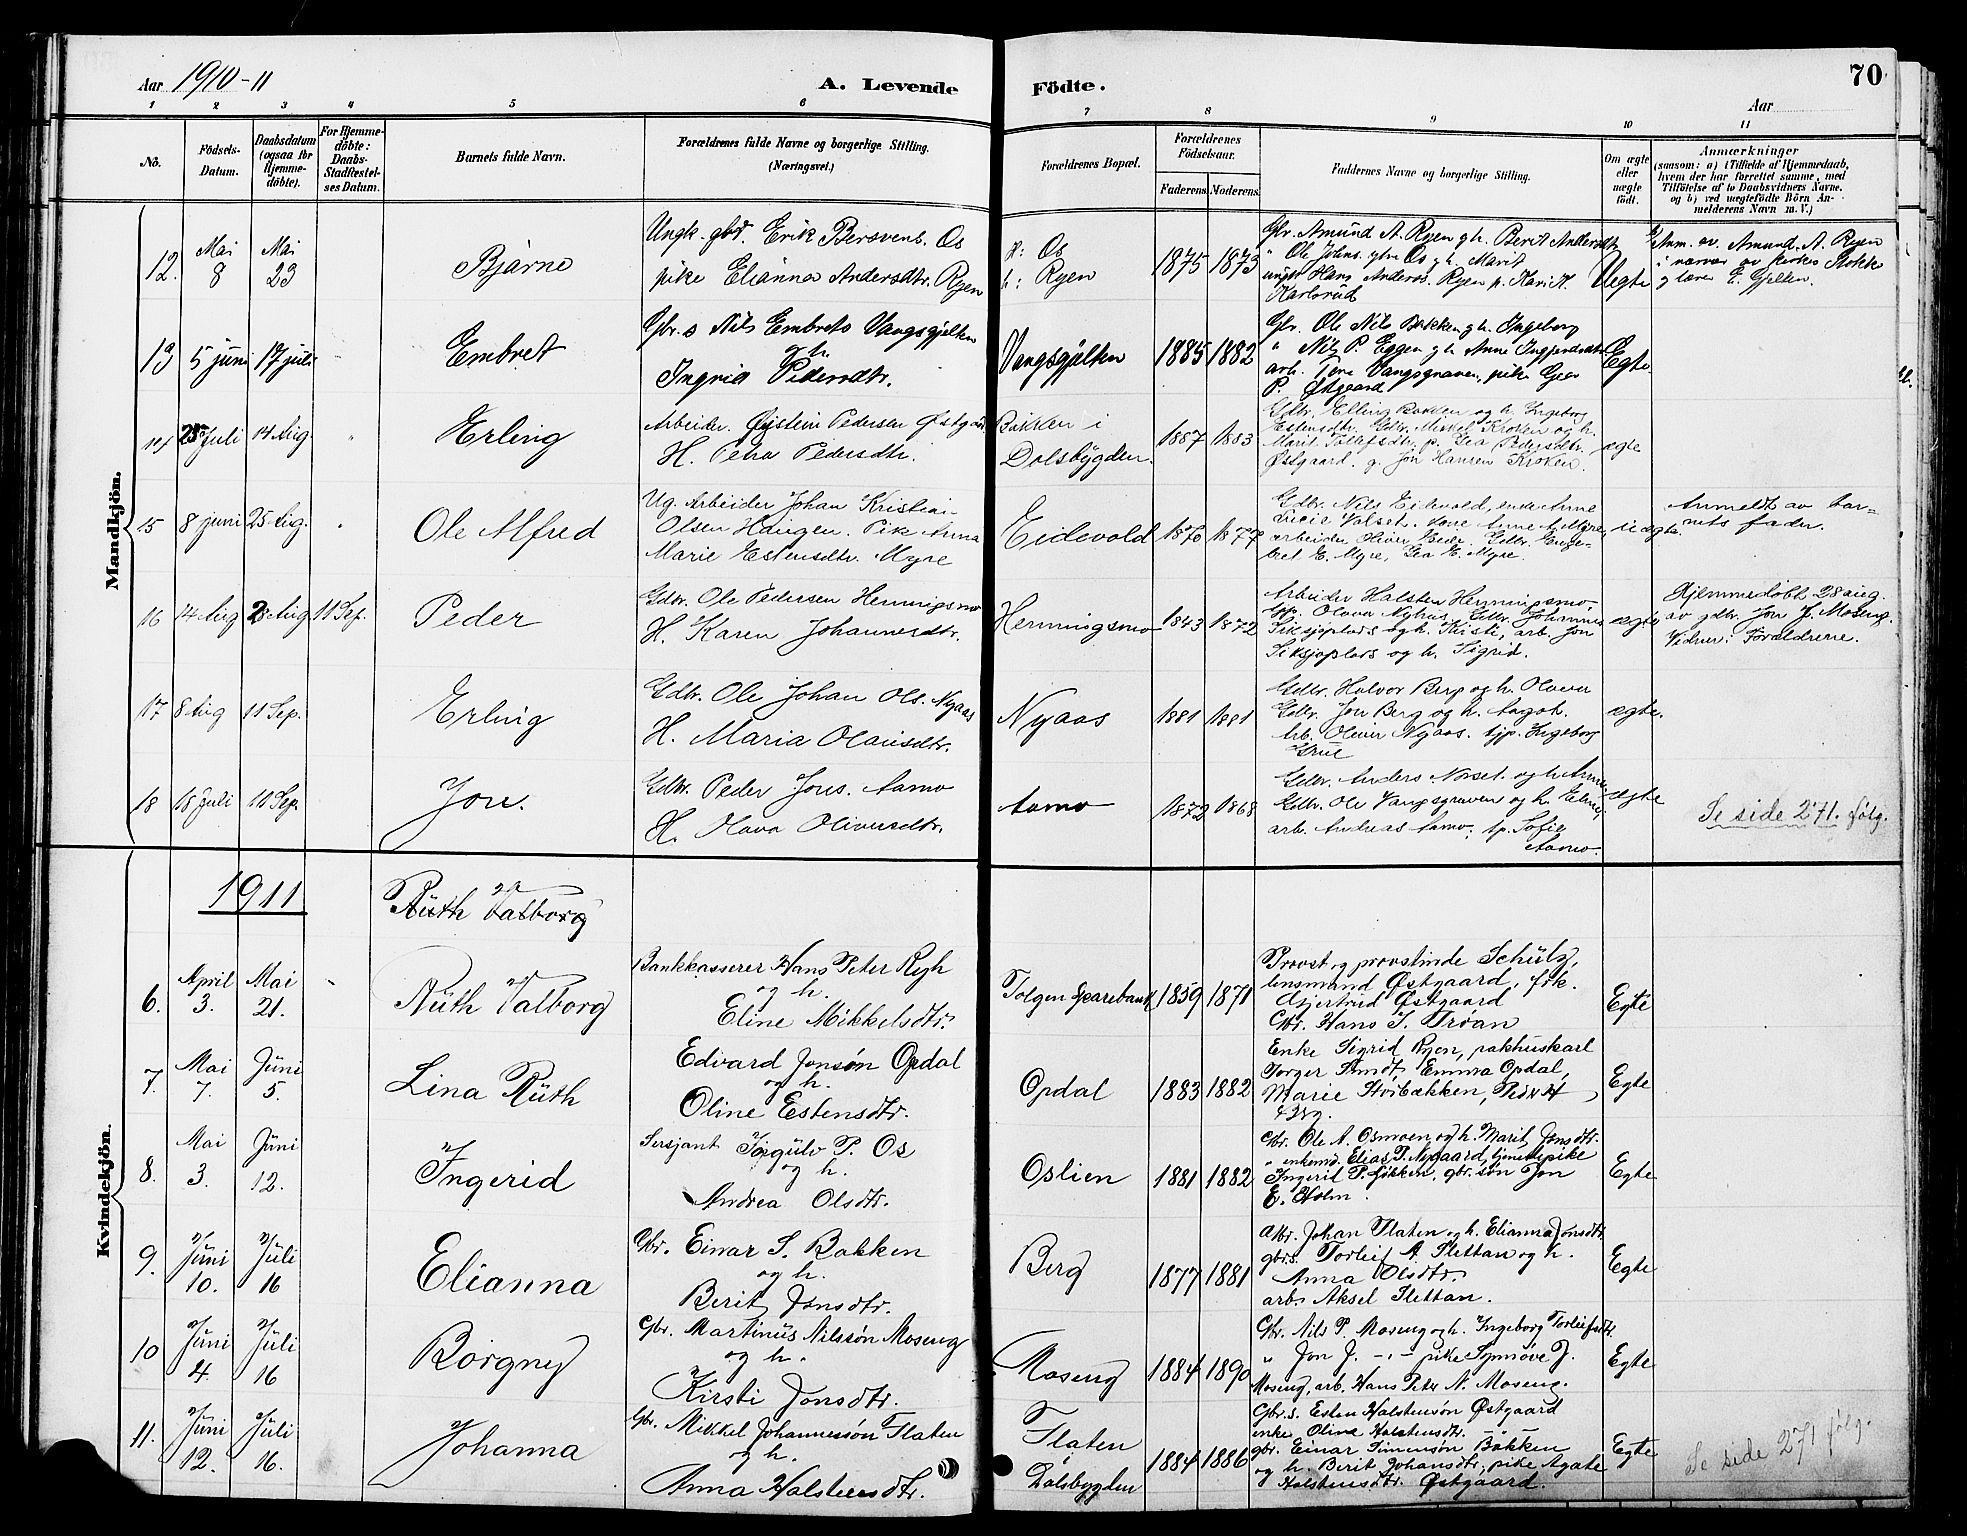 Aar 1910-11
A. Levende Födte.
70
Aar
1 2 3 4 5 6 7 8 9 10 11
No.
Födsels-Datum.
Daabsdatum (ogsaa for Hjemme-döbte).
For Hjemme-döbte: Daabs-Stadfæstel-ses Datum.
Barnets fulde Navn.
Forældrenes fulde Navne og borgerlige Stilling. (Næringsvei.)
Forældrenes Bopæl.
Forældrenes Födselsaar.
Faderens. Moderens.
Faddernes Navne og borgerlige Stilling.
Om ægte eller uægte födt.
Anmærkninger
(saasom: a) i Tilfælde af Hjemmedaab,
hvem der har forrettet samme, med
Tilföielse af to Daabsvidners Navne.
og b) ved uægtefödte Börn An-
melderens Navn m. V.)
Mandkjön.
12. Mai 8 Mai 23 Bjarne
Ungk. gbr. Erik Bersvens. Os
pike Elianna Andersdtr. Ryen
f: Os
h: Ryen
1875 1873
Gbr. Amund A. Ryen g h. Berit Andersdtr
" Ole Johns. gbr Os g h. Marit
ungk Hans Anders. Ryen p. Kari K.
Karlsrud
Uegte
Anm. av Amund A. Ryen
i nærvær av kirkes. Stokke
g lærer E. Gjelten.
13 5 juni 17 juli " Embret
Gbr. s Nils Embrets Vangsgjelten
og h.
Ingrid Pedersdtr.
Vangsgjelten 1885 1882
Gbr. Ole Nils Bakken g h. Ingeborg
" Nils P. Eggen g h Anne Ingjerdsdtr
arb. Tore Vangsgraven, pike Gea
P. Østgaard
Egte
14 25 Juli 14 Aug. " Erling
Arbeider. Øystein Pedersen Østgaard
H. Petra Pedersdtr.
Bakken i
Dalsbygden.
1887 1883
Gdbr. Elling Bakken og h. Ingeborg
Estensdtr. Gdbr. Mikkel Kroken og h.
Marit Tollefsdtr. p. Gea Pedersdtr.
Østgaard. g. Jon Hansen Kroken.
ægte
15 8 juni 25 Aug. " Ole Alfred
Ug. Arbeider Johan Kristian
Olsen Haugen. Pike Anna
Marie Estensdtr. Myre
Eidevold 1870 1877
Gdbr. Nils Eidevold, enke Anne
Valset. Kone Anne Myre,
arbeider Oliver Gdbr. Enge-
bret E. Myre, Gea E. Myre.
uægte.
Anmeldt av bar-
nets fader.
16 14 Aug 28 Aug 11 Sep. Peder
Gdbr. Ole Pedersen Henningsmo
H. Karen Johannesdtr.
Henningsmo 1843 1872
Arbeider Halsten Henningsmo,
tjp. Olava Nyhus, Gdbr. Johannes
Siksjøplads og h. Kisti, arb. Jon
Siksjøplads og h. Sigrid.
ægte
Hjemmedøbt 28 aug.
av gdbr. Jon J. Moseng.
Vidner: Forældrene.
17 8 Aug 11 Sep. Erling
Gdbr. Ole Johan Ols. Nyaas
H. Maria Olausdtr.
Nyaas 1881 1881
Gdbr. Halvor Berg og h. Olava
Gdbr. Jon Berg og h. Aagot.
Arb. Oliver Nyaas. tjp. Ingeborg
Grue
ægte.
18 18 Juli 11 Sep. Jon.
Gdbr. Peder Jons. Aamo
H. Olava Oliversdtr.
Aamo 1872 1868
Gdbr. Anders Norset og h. Anne
Gdbr. Ole Vangsgraven og h.
arb. Andreas Aamo, tp. Sofie
Aamo.
ægte
Se side 271. følg.
Kvindekjön.
1911 Ruth Valborg
6. April 3. Mai 21. Ruth Valborg
Bankkasserer Hans Peter Ryh
og h.
Eline Mikkelsdtr.
Tolgen Sparebank 1859 1871
Provst og provstinde Schulz,
lensmand Østgaard, frk.
Gjertrud Østgaard
Gbr. Hans J. Trøan
Egte
7. Mai 7. Juni 5. Lina Ruth
Edvard Jonsøn Opdal
og h.
Oline Estensdtr.
Opdal 1883 1882
Enke Sigrid Ryen, pakhuskarl
Torger Emma Opdal,
Marie Støibakken,
Egte
8. Mai 3. Juni 12. Ingerid
Sersjant Ingulv P. Os
og h.
Andrea Olsdtr.
Oslien 1881 1882
Gbr. Ole A. Osmoen og h. Marit Jonsdtr.
" enkem. Elias P. Nygaard, tjenestepike
Ingerid P. Løkken, gbr. søn Jon
E. Holm.
Egte
9. Juni 10. Juli 16 Elianna
Gbr. Einar S. Bakken
og h.
Berit Jonsdtr.
Berg 1877 1881
Gbr. Johan Flaten og h. Elianna Jonsdtr.
gbr.s. Torleif A Slettan og h.
Anna Olsdtr.
arb. Aksel Slettan.
Egte
10 Juni 4. Juli 16 Borgny
Gbr. Martinus Nilssøn Moseng
og h.
Kirsti Jonsdtr.
Moseng 1884 1890
Gbr. Nils P. Moseng og h. Ingeborg Torleifsdtr.
" Jon J. - " - pike Synnøve J.
Moseng, arb. Hans Peter N. Moseng.
Egte
11. Juni 12. Juli 16. Johanna
Gbr. Mikkel Johannessøn Flaten
og h.
Anna Halstensdtr.
Flaten
Dalsbygden
1884 1886
Gbr.s. Esten Halstensøn Østgaard
enke Olina Halstensdtr. - " -
gbr. Einar Simensøn Bakken
og h. Berit Johansdtr., pike Agate
Halstensdtr. Østgaard.
Egte
Se side 271 følg.